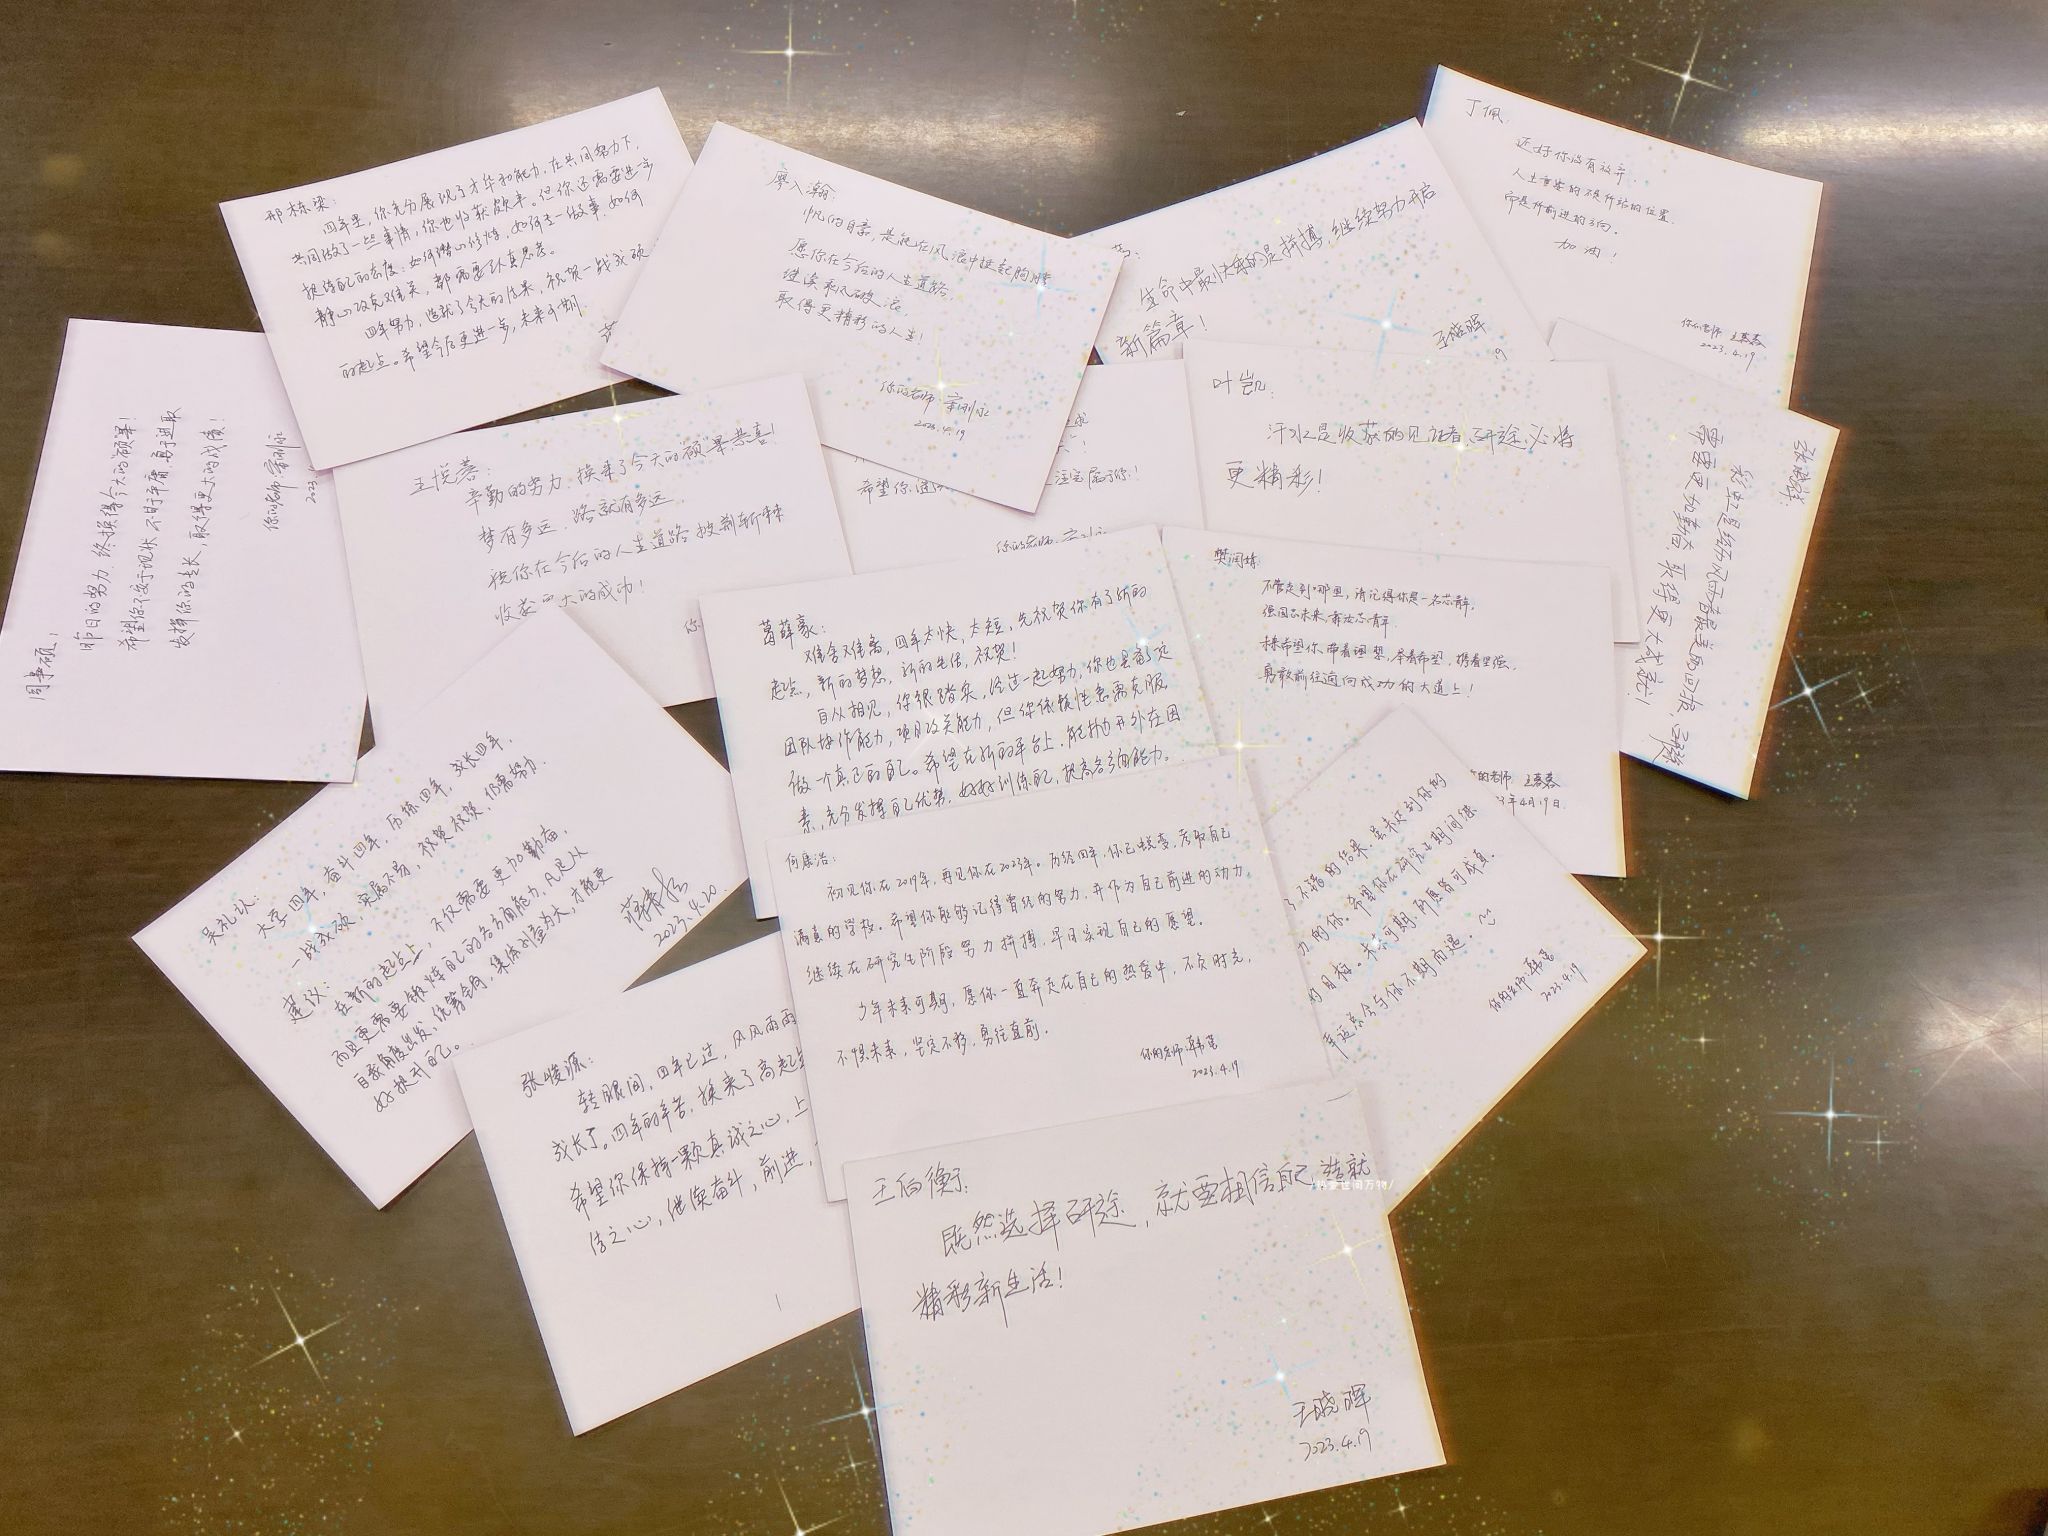 邢栋梁：
四年里，你充分展现了才华和能力，在共同努力下，
共同做了一些事情，你也收获颇丰。但你还需要进一步
提炼自己的态度：如何潜心修炼，如何去一做事，如何
静心攻克难关，都需要认真思考。
四年努力，造就了今天的结果，祝贺一战成硕
的起点。希望今后更进一步，未来可期。
廖入瀚：
忙的目素，是能在风浪中挺起胸膛
愿你在今后的人生道路，
继续乘风破浪，
取得更精彩的人生！
你的老师：
2023.4.19
生命中最快乐的是拼搏，继续努力开启
新篇章！
王晓晖
丁佩：
还好你没有放弃，
人生重要的不是所站的位置，
而是所前进的方向。
加油！
你的老师
2023.4.19
昨日的努力，终换得今天的硕果！
希望你不安于现状，不甘于平庸，勇于进取
发挥你的专长，取得更大的成绩！
你的老师：
2023
王悦善：
辛勤的努力，换来了今天的硕果，恭喜！
梦有多远，路就有多远，
祝你在今后的人生道路披荆斩棘
收获更大的成功！
希望你
注定属于你！
你的老师
叶凯：
汗水是收获的见证者，研途必将
更精彩！
彩虹是给风雨者最美的回报，
需要更加勤奋，取得更大成就！
葛薛豪：
难舍难离，四年太快，太短，先祝贺你有了新的
起点，新的梦想，新的生活，祝贺！
自从相见，你很踏实，经过一起努力，你也具备了
团队协作能力，项目攻关能力，但你依赖性急需克服，
做一个真正的自己。希望在新的平台上，能抛开外在因
素，充分发挥自己优势，好好训练自己，提高各方面能力。
樊润炼：
不管走到哪里，请记得你是一名芯青年，
强国芯未来，有我芯青年，
未来希望你，带着理想，举着希望，携着坚强，
勇敢前往通向成功的大道上！
的老师
3年4月19日
吴礼认：
大学四年，奋斗四年，历练四年，成长四年，
一战成硕，实属不易，祝贺祝贺，仍需努力。
建议：
在新的起点上，不仅需要更加勤奋，
而且更需要锻炼自己的各方面能力，凡是从
自我角度出发，统筹全局，集体利益为大，才能更
好提升自己。
2023.4.20
何康浩：
初见你在2019年，再见你在2023年。历经四年，你已蜕变，考取自己
满意的学校。希望你能够记得曾经的努力，并作为自己前进的动力，
继续在研究生阶段努力拼搏，早日实现自己的愿望。
少年未来可期，愿你一直奔走在自己的热爱中，不负时光，
不惧未来，坚定不移，勇往直前。
你的老师：韩
2023.4.19
了不错的结果，虽未达到你的
力的你。希望你在研究生期间继
的目标。未来可期，所愿皆可成真。
幸运总会与你不期而遇。
你的老师：韩
2023.4.19
张峻源：
转眼间，四年已过，风风雨雨
成长了。四年的辛苦，换来了高起点
希望你保持一颗真诚之心，上
之心，继续奋斗，前进，
王伯衡：
既然选择研途，就要相信自己造就
精彩新生活！
王晓晖
2023.4.19
/热爱世间万物/